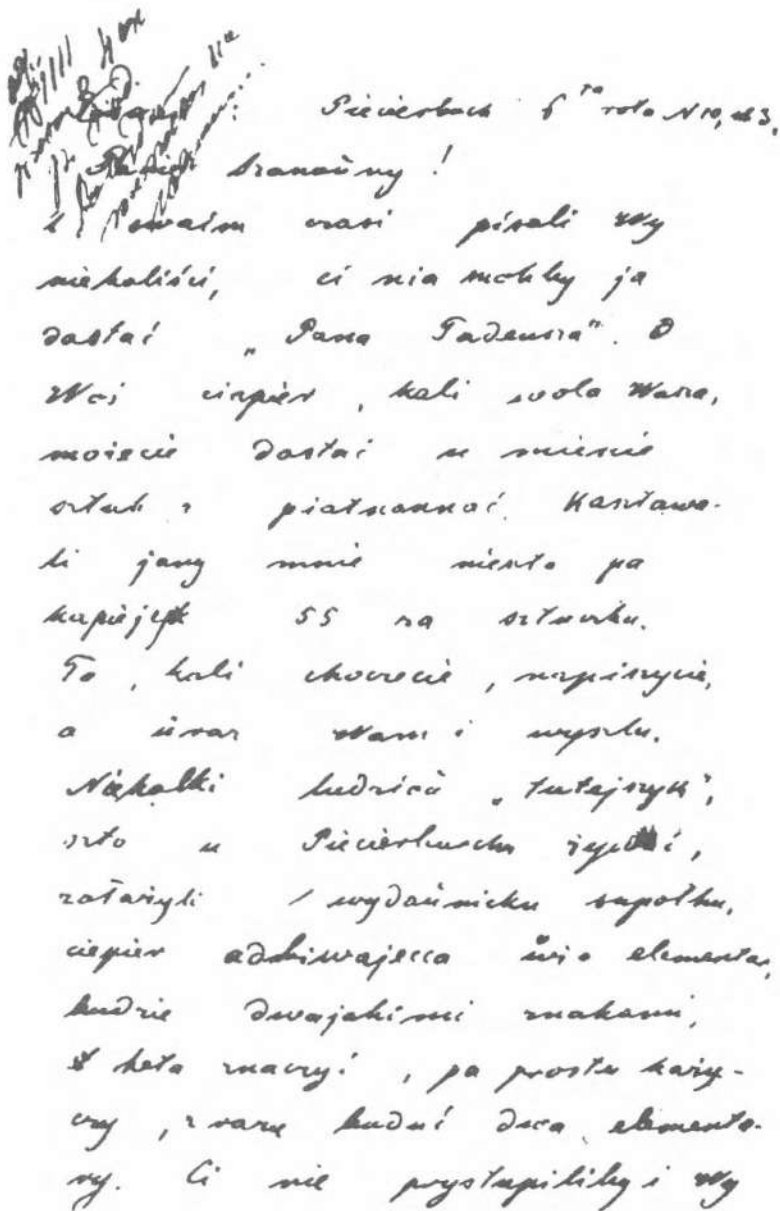 Pieciarburh 6 ta rota N 10, kb 3.
Szanoŭny!
U swaim czasi pisali Wy
niekaliści, ci nia mohby ja
dastać „Pana Tadeusza". O
Woś ciapier, kali wola Wasza,
możecie dastać u miescie
sztuk z piatnancać. Kasztawa-
li jany mnie niesztο pa
kapiejek 55 za sztuczku.
To, kali choczecie, napiszycie,
a ŭraz Wam i wyszlu.
Niekalki ludzieŭ „tutejszych",
szto u Pieciarburchu żywuć,
załażyli wydaŭnicku supołku,
ciepier adbiwajecca ŭżo elementar,
budzie dwajakimi znakami,
heta znaczyć, pa prostu każu-
czy, zraza buduć dwa elementa-
ry. Ci nie prystupiliby i Wy